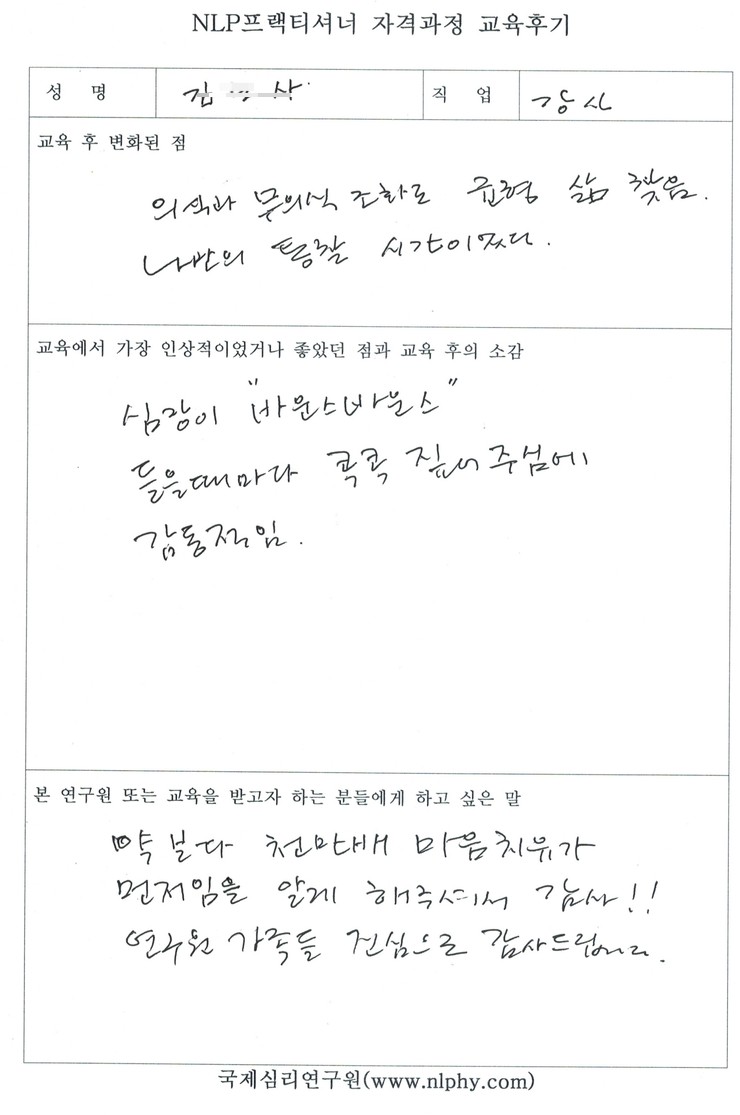 NLP프랙티셔너 자격과정 교육후기
성 명 김 직 업 강사
교육 후 변화된 점
의식과 무의식 조화로 균형 삶 찾음.
나만의 통찰 시간이었다.
교육에서 가장 인상적이었거나 좋았던 점과 교육 후의 소감
심장이 "바운스바운스"
들을때마다 콕콕 짚어주심에
감동적임.
본 연구원 또는 교육을 받고자 하는 분들에게 하고 싶은 말
약보다 천만배 마음치유가
먼저임을 알게 해주셔서 감사!!
연구원 가족들 진심으로 감사드립니다.
국제심리연구원(www.nlphy.com)